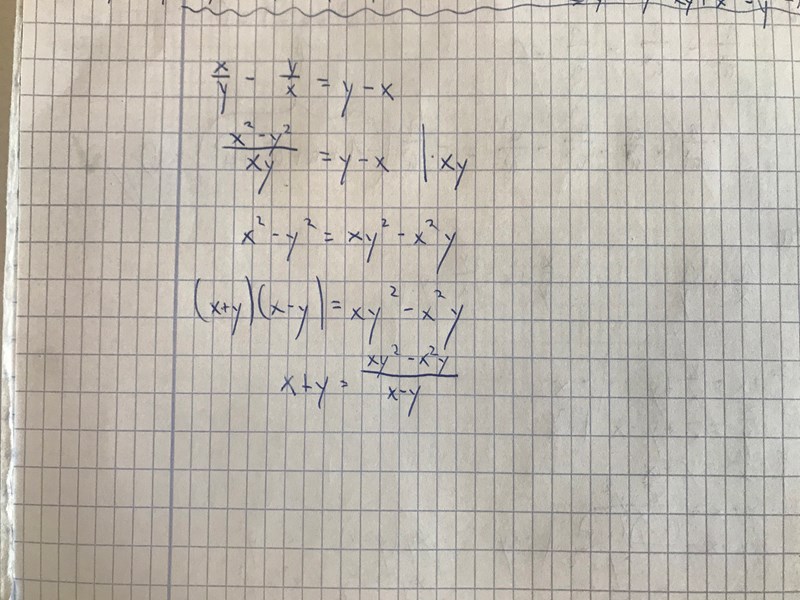 x/y - y/x = y - x
(x² - y²)/(xy) = y - x | · xy
x² - y² = xy² - x²y
(x+y)(x-y) = xy² - x²y
x+y = (xy² - x²y)/(x-y)